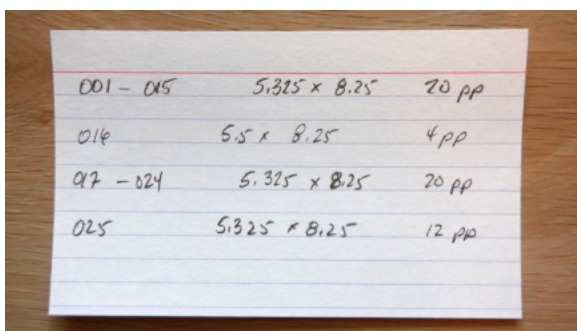 001 - 015 5.325 x 8.25 20 pp
016 5.5 x 8.25 4 pp
017 - 024 5.325 x 8.25 20 pp
025 5.325 x 8.25 12 pp